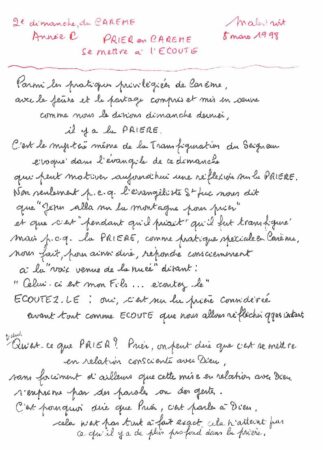 2e dimanche du CARÊME Malestroit
Année C PRIER en CARÊME 8 mars 1998
Se mettre à l'ECOUTE
Parmi les pratiques privilégiées de Carême,
avec le jeûne et le partage compris et mis en œuvre
comme nous le disions dimanche dernier,
il y a la PRIERE.
C'est le mystère même de la Transfiguration du Seigneur
évoqué dans l'évangile de ce dimanche
qui peut motiver aujourd'hui une réflexion sur la PRIERE.
Non seulement p.c.q. l'évangéliste St Luc nous dit
que "Jésus alla sur la montagne pour prier"
et que c'est "pendant qu'il priait" qu'il fut transfiguré
mais p.c.q. la PRIERE, comme pratique spéciale en Carême,
nous fait, pour ainsi dire, répondre consciemment
à la "voix venue de la nuée" disant :
"Celui-ci est mon Fils... écoutez le"
ECOUTEZ-LE : oui, c'est sur la prière considérée
avant tout comme ECOUTE que nous allons réfléchir qques instants
D'abord
Qu'est-ce que PRIER ? Prier, on peut dire que c'est se mettre
en relation consciente avec Dieu,
sans forcément d'ailleurs que cette mise en relation avec Dieu
s'exprime par des paroles ou des gestes.
C'est pourquoi dire que Prier, c'est parler à Dieu,
cela n'est pas tout à fait exact, cela n'atteint pas
ce qu'il y a de plus profond dans la prière.